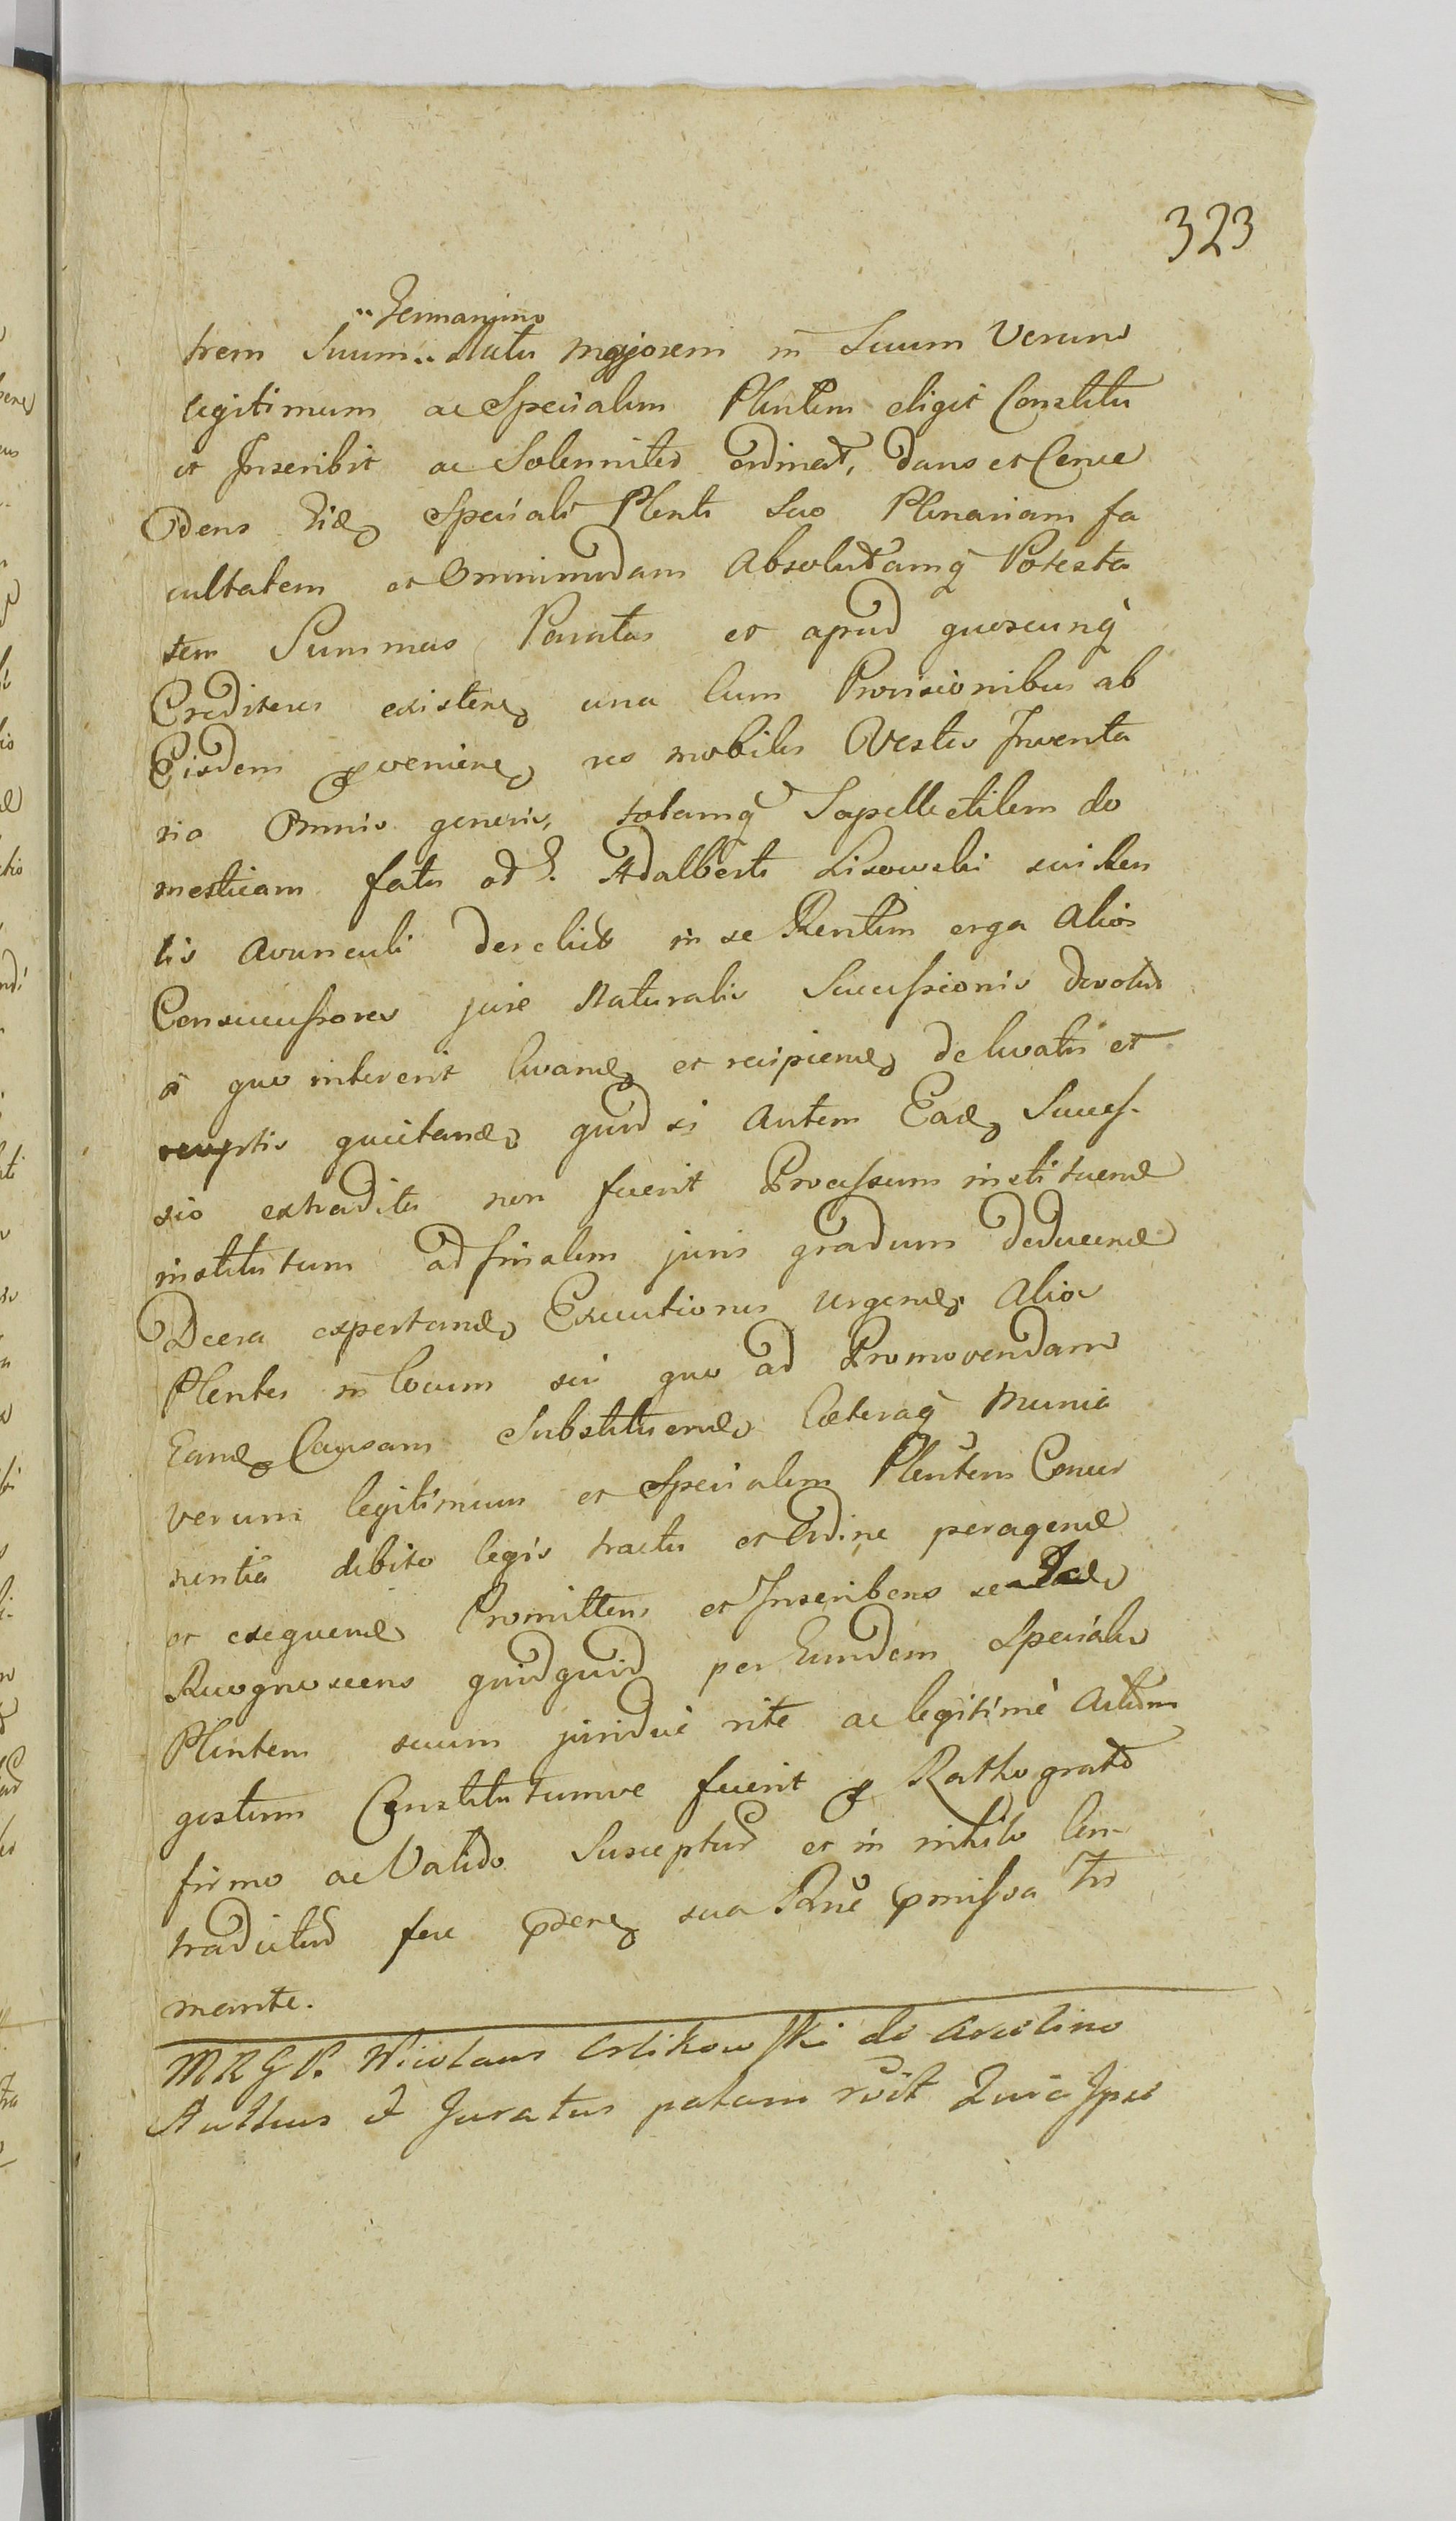 323
Germanum
trem Suum natu Majorem in Suum Verum
legitimum ac Specialem Plentem eligit Constitu
it Inscribit ac Solenniter ordinat, dans et Conce
dens Eid Speciali Plenti Suo Plenariam fa
cultatem et Omnimodam Absolutamq Potesta
tem Summas Paratas et apud quoscunq
Creditores existen una Cum Provisionibus ab
Eisdem provenien res mobiles Vestes Inventa
ria Omnis generis, totamq Supellectilem do
mesticam fatu od G. Adalberti Lisowski sui Ren
tis Avunculi derelict in se Rentem erga Alios
Consuccessores jure Naturalis Successionis devolut
a quo intererit levand et recipiend de levatis et
receptis quietand quod si Autem Ead Succes-
sio extradita non fuerit Processum instituend
institutum ad finalem juris gradum deducend
Dcera expectand Executiones urgend Alios
Plentes in locum sui quo ad Promovendam
Eand Causam Substituend Caeteraq Munia
verum legitimum et Specialem Plentem Concer
nentia debito legis tractu et Ordine peragend
et exequend Promittens et Inscribens se
Recognoscens quidquid per Eundem Speciale
Plentem suum juridice rite ac legitime Actum
gestum Constitutumve fuerit Ratho grato
firmo ac Valido Suscepturum et in nihilo Con-
tradictur fore sua Rne pmissa
mante.
MRGP. Nicolaus Orlikowski de
Actibus Juratus palam rvit Quia Ipse